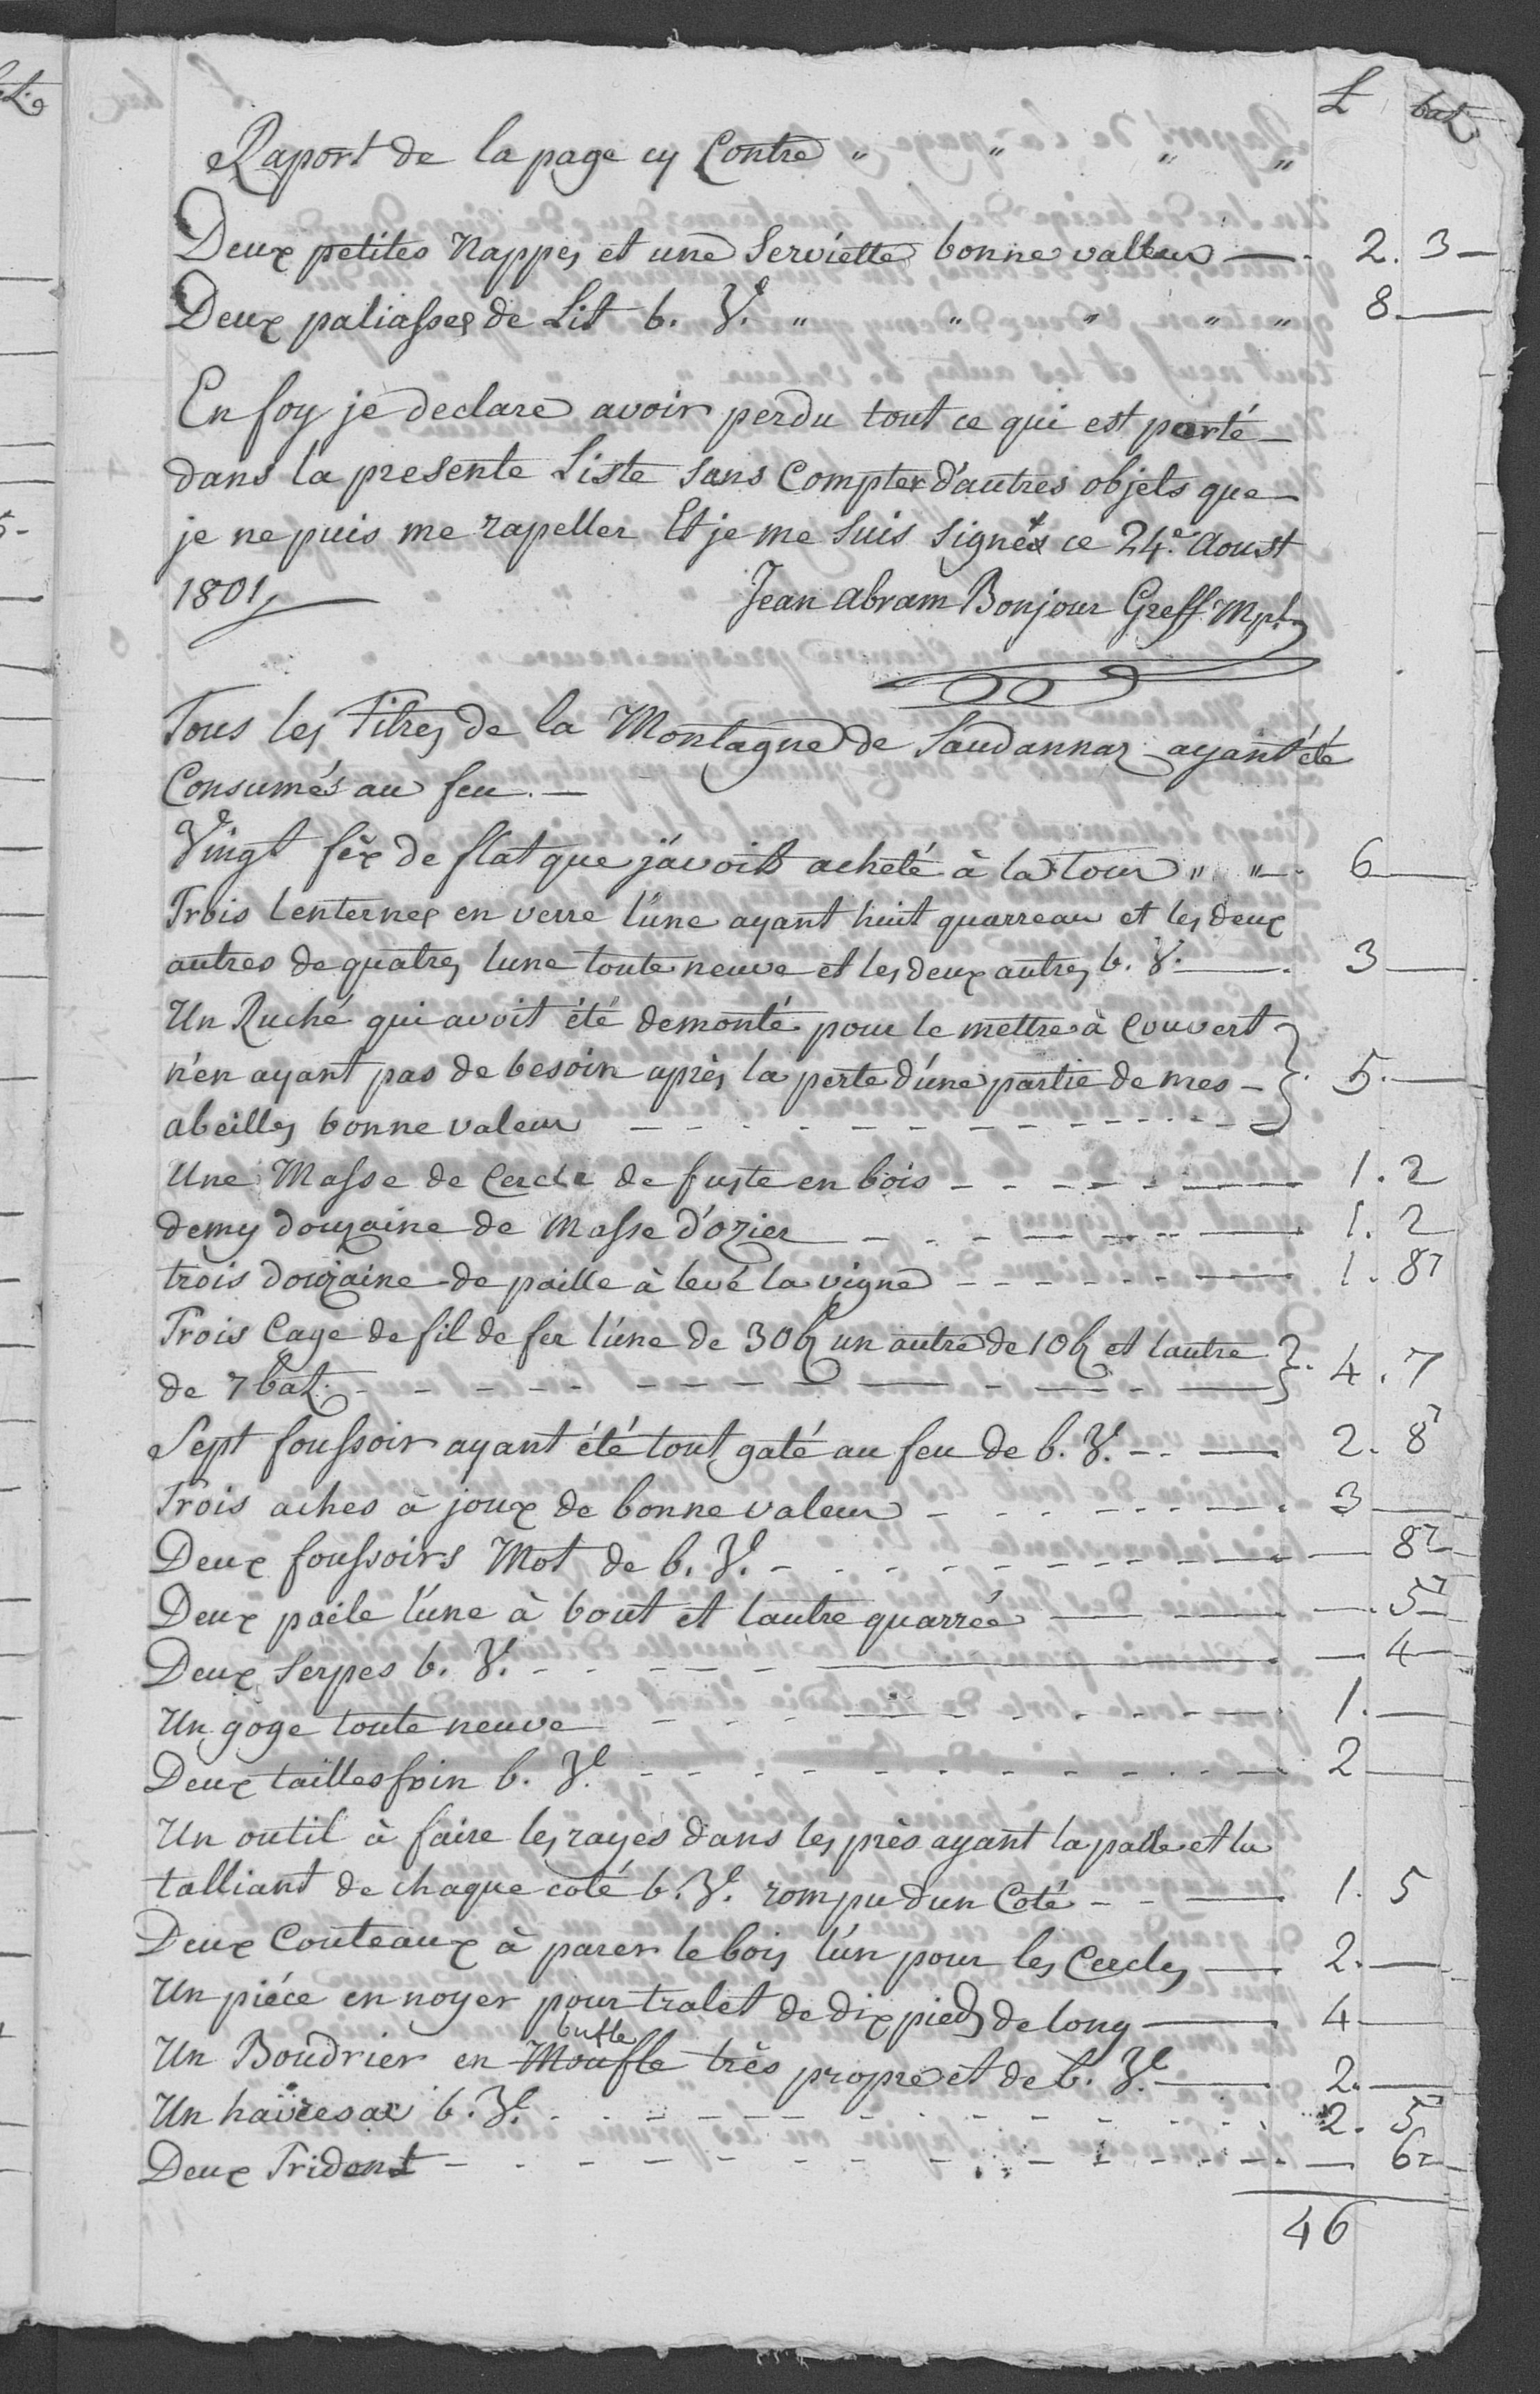 L batz
Raport de la page cy Contre " " " "
Deux petites Nappes et une Serviette bonne valleur — 2. 3 —
Deux paliasses de Lit b. Vr. " " " " " 8. —
En foy je declare avoir perdu tout ce qui est porté
dans la presente Liste sans Compter d'autres objets que
je ne puis me rapeller Et je me suis signé ce 24e. Aoust
1801, Jean Abram Bonjour Greff. Mpl.
Tous les Titres de la Montagne de Saudannaz ayant été
Consumés au feu. —
Vingt fèx de flat que j'avoit acheté à la tour " " — 6 —
Trois lenternes en verre l'une ayant huit quarreau et les deux
autres de quatres lune toute neuve et les deux autres b. V. — 3 —
Un Ruché qui avoit été demonté pour le mettre à couvert
n'en ayant pas de besoin après la perte d'une partie de mes — 5. —
abeilles bonne valeur
Une Masse de Cercle de fuste en bois — 1. 2
demy douzaine de Masse d'ozier — 1. 2
trois douzaine de paille à levé la vigne — 1. 8
Trois Cage de fil de fer l'une de 30 bz un autre de 10 bz et l'autre
de 7 batz. — 4. 7
Sept foussoir ayant été tout gaté au feu de b. V. — 2. 8
Trois aches à joux de bonne valeur — 3 —
Deux foussoirs Mot de b. Vr. — 8 —
Deux paële l'une à bout et lautre quarrée — 5 —
Deux Serpes b. V. — 4 —
Un goge toute neuve — 1. —
Deux tailles foin b. Vr. — 2 —
Un outil à faire les rayes dans les près ayant la palle et la
talliant de chaque coté b. Vr. rompu dun Coté — 1. 5
Deux Couteaux à parer le bois l'un pour les Cercles — 2. —
Un piéce en noyer pour tralet de dix pieds de long — 4 —
buffle
Un Boudrier en Moufle très propre et de b. Vr. — 2. —
Un havresac b. Vr. — 2. 5
Deux Trident — 6 —
46